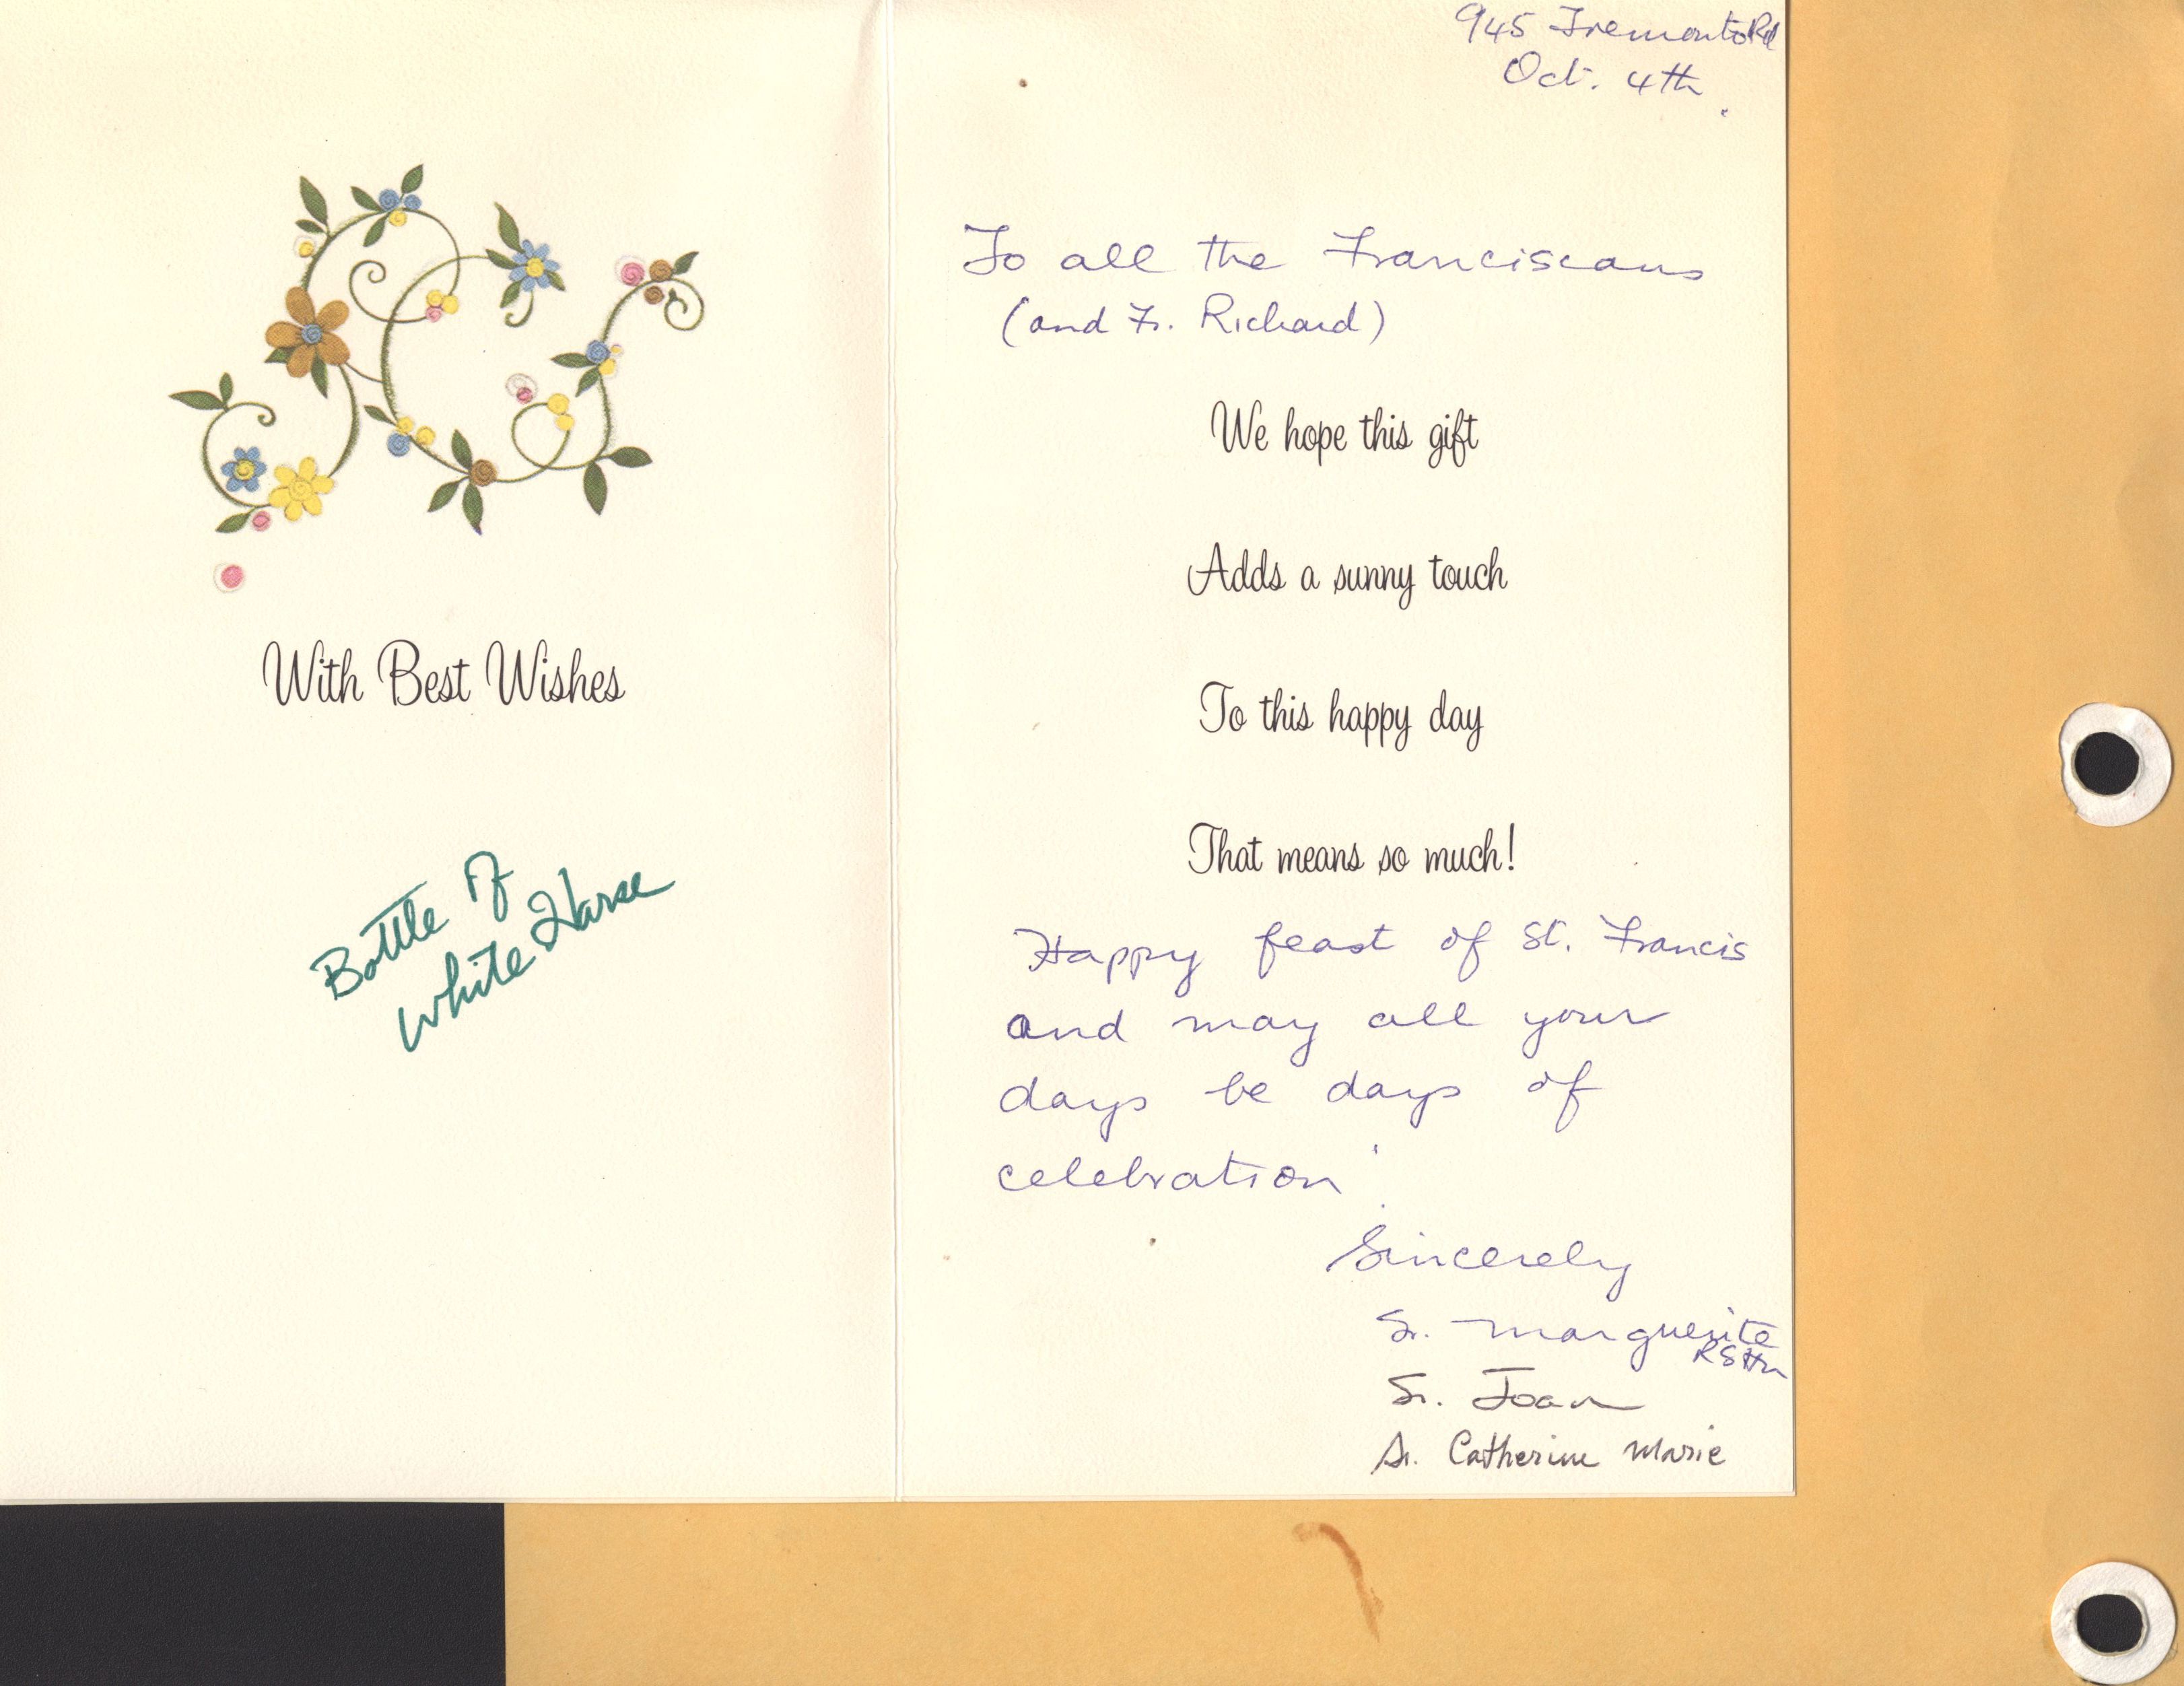 With Best Wishes
Bottle of
White Horse
945 Tremont Rd
Oct. 4th.
To all the Franciscans
(and Fr. Richard)
We hope this gift
Adds a sunny touch
To this happy day
That means so much!
Happy feast of St. Francis
and may all your
days be days of
celebration.
Sincerely
Sr. Marguerite
RSHM
Sr. Joan
Sr. Catherine Marie